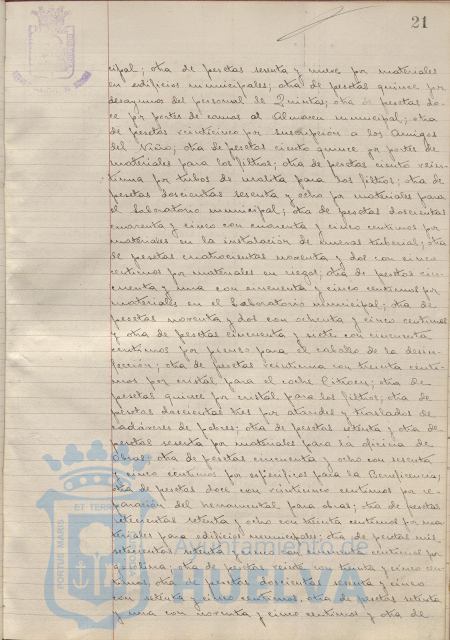 21
cipal; otra de pesetas sesenta y nueve por materiales
en edificios municipales; otra de pesetas quince por
desayunos del personal de Quintas; otra de pesetas do-
ce por portes de camas al Almacen municipal; otra
de pesetas veinticinco por suscripción a los Amigos
del Niño; otra de pesetas ciento quince por portes de
materiales para los filtros; otra de pesetas ciento vein-
tiuna por tubos de uralita para los filtros; otra de
pesetas doscientas sesenta y ocho por materiales para
el Laboratorio municipal; otra de pesetas doscientas
cuarenta y cinco con cuarenta y cinco centimos por
materiales en la instalacion de nuevas tuberias; otra
de pesetas cuatrocientas noventa y dos con cinco
centimos por materiales en riegos; otra de pesetas cin-
cuenta y una con cincuenta y cinco centimos por
materiales en el Laboratorio municipal; otra de
pesetas noventa y dos con ochenta y cinco centimos
y otra de pesetas cincuenta y siete con cincuenta
centimos por pienso para el caballo de la desin-
fección; otra de pesetas veintiuna con treinta centi-
mos por cristal para el coche Citroen; otra de
pesetas quince por cristal para los filtros; otra de
pesetas doscientas tres por ataudes y traslados de
cadáveres de pobres; otra de pesetas setenta y otra de
pesetas sesenta por materiales para la oficina de
Obras; otra de pesetas cincuenta y ocho con sesenta
y cinco centimos por especificos para la Beneficencia;
otra de pesetas doce con veintiuno centimos por re-
paracion del herramental para obras; otra de pesetas
setecientas setenta y ocho con treinta centimos por ma-
teriales para edificios municipales; otra de pesetas mil
setecientas setenta y con centimos por
gasolina; otra de pesetas veinte con treinta y cinco cen-
timos, otra de pesetas doscientas sesenta y cinco
con setenta y cinco centimos, otra de pesetas setenta
y una con noventa y cinco centimos y otra de
Ayuntamiento de
HUELVA
PORTUS MARIS
ET TERRAE